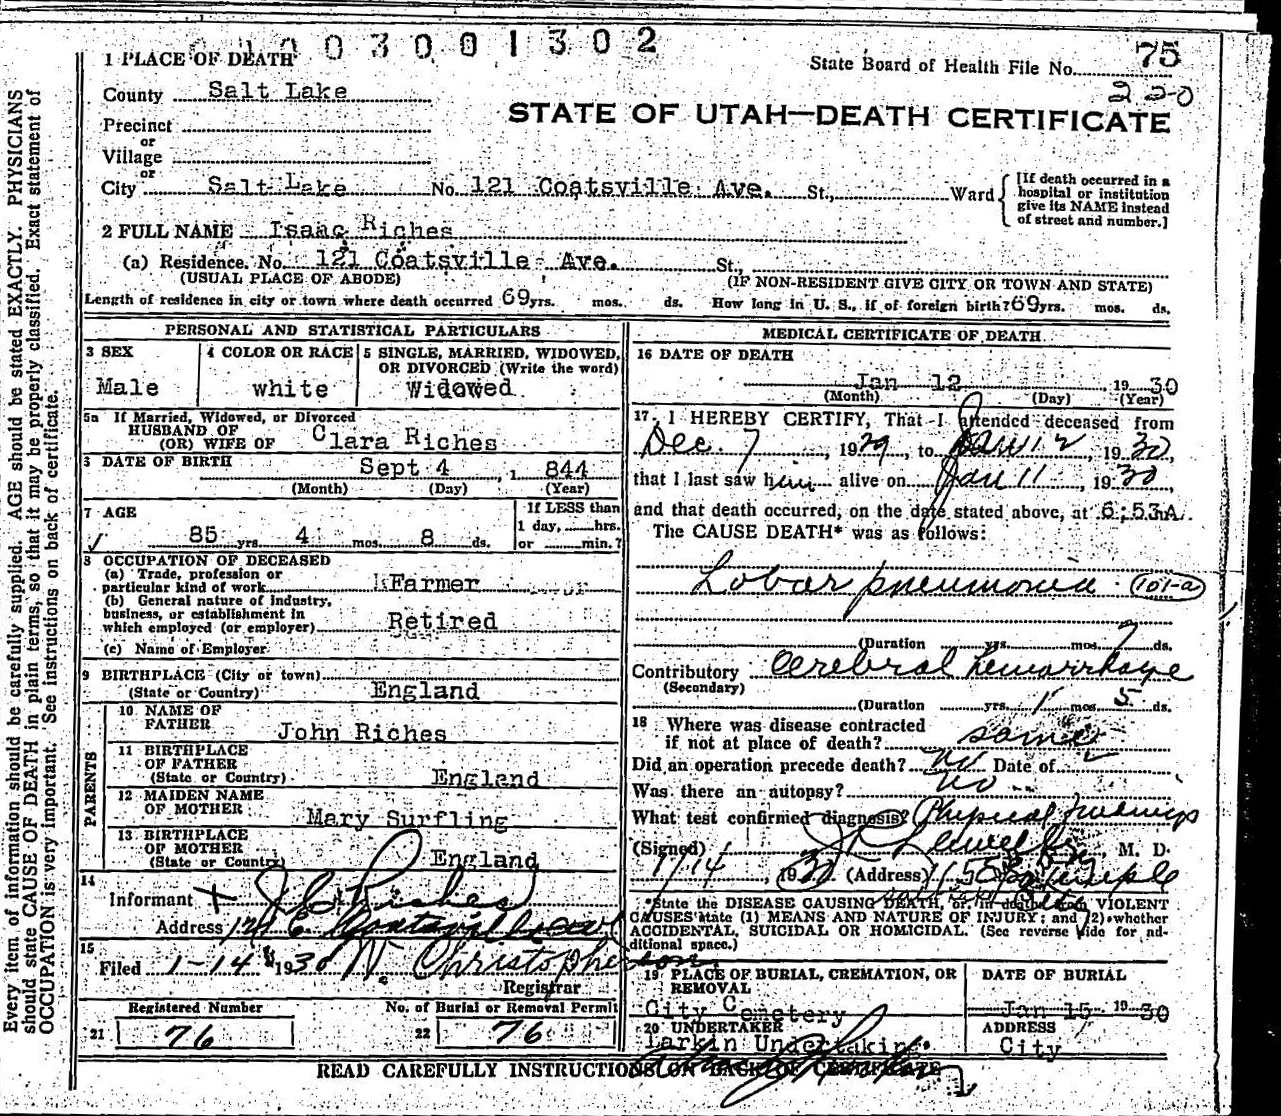 1003001302
1 PLACE OF DEATH
State Board of Health File No. 75
220
County Salt Lake
STATE OF UTAH—DEATH CERTIFICATE
Precinct
or
Village
or
City Salt Lake No. 121 Coatsville Ave. St., Ward
[If death occurred in a hospital or institution give its NAME instead of street and number.]
2 FULL NAME Isaac Riches
(a) Residence. No. 121 Coatsville Ave. St.,
(USUAL PLACE OF ABODE) (IF NON-RESIDENT GIVE CITY OR TOWN AND STATE)
Length of residence in city or town where death occurred 69 yrs. mos. ds. How long in U. S., if of foreign birth? 69 yrs. mos. ds.
PERSONAL AND STATISTICAL PARTICULARS
3 SEX
Male
4 COLOR OR RACE
white
5 SINGLE, MARRIED, WIDOWED,
OR DIVORCED (Write the word)
Widowed
5a If Married, Widowed, or Divorced
HUSBAND OF
(OR) WIFE OF Clara Riches
DATE OF BIRTH
Sept 4, 1 844
(Month) (Day) (Year)
7 AGE
85 yrs. 4 mos. 8 ds.
If LESS than
1 day, hrs.
or min.?
8 OCCUPATION OF DECEASED
(a) Trade, profession or
particular kind of work Farmer
(b) General nature of industry,
business, or establishment in
which employed (or employer) Retired
(c) Name of Employer
9 BIRTHPLACE (City or town)
(State or Country) England
PARENTS
10 NAME OF
FATHER John Riches
11 BIRTHPLACE
OF FATHER
(State or Country) England
12 MAIDEN NAME
OF MOTHER Mary Surfling
13 BIRTHPLACE
OF MOTHER
(State or Country) England
14
Informant J C Riches
Address 121 E
15
Filed 1-14 1930 N. Christopherson
Registrar
Registered Number
21 76
No. of Burial or Removal Permit
22 76
MEDICAL CERTIFICATE OF DEATH
16 DATE OF DEATH
Jan 12 19 30
(Month) (Day) (Year)
17 I HEREBY CERTIFY, That I attended deceased from
Dec. 7, 1929, to Jan 12, 1930,
that I last saw him alive on Jan 11, 1930,
and that death occurred, on the date stated above, at 6:53A.
The CAUSE DEATH* was as follows:
Lobar pneumonia 101-a
(Duration yrs. mos. 7 ds.
Contributory Cerebral hemorrhage
(Secondary)
(Duration yrs. 1 mos. 5 ds.
18 Where was disease contracted
if not at place of death? same
Did an operation precede death? no Date of
Was there an autopsy? no
What test confirmed diagnosis? Physical findings
(Signed) M. D.
1/14, 1930 (Address) Temple
*State the DISEASE CAUSING DEATH, or in deaths from VIOLENT
CAUSES state (1) MEANS AND NATURE OF INJURY; and (2) whether
ACCIDENTAL, SUICIDAL OR HOMICIDAL. (See reverse side for ad-
ditional space.)
19 PLACE OF BURIAL, CREMATION, OR
REMOVAL
City Cemetery
DATE OF BURIAL
Jan 15 19 30
20 UNDERTAKER
Larkin Undertaking.
ADDRESS
City
READ CAREFULLY INSTRUCTIONS ON BACK OF CERTIFICATE
Every item of information should be carefully supplied. AGE should be stated EXACTLY. PHYSICIANS
should state CAUSE OF DEATH in plain terms, so that it may be properly classified. Exact statement of
OCCUPATION is very important. See instructions on back of certificate.